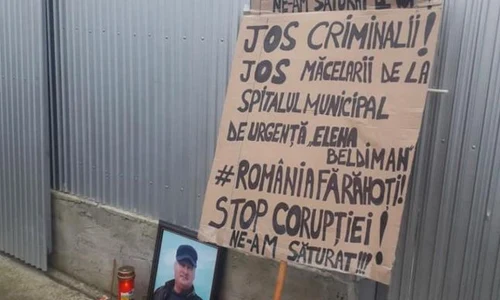 NE-AM SĂTURAT
JOS CRIMINALII!
JOS MĂCELARII DE LA
SPITALUL MUNICIPAL
DE URGENȚĂ „ELENA
BELDIMAN"
#ROMÂNIAFĂRĂHOȚI!
STOP CORUPȚIEI!
NE-AM SĂTURAT!!!